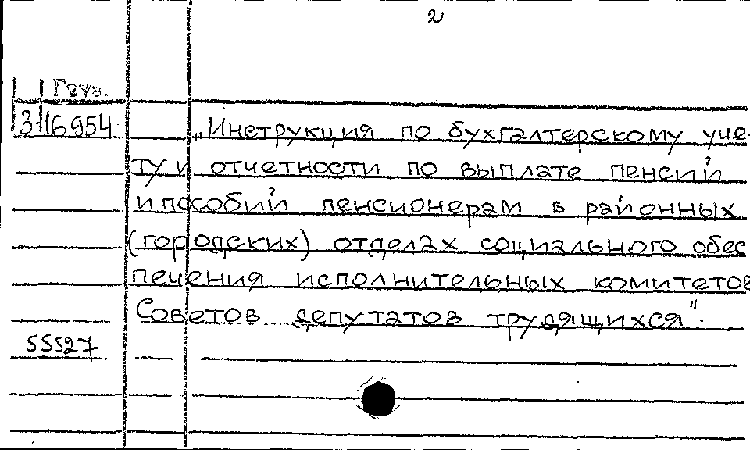 2
Груз.
3 16954
„Инструкция по бухгалтерскому уче-
ту и отчетности по выплате пенсий
и пособий пенсионерам в районных
(городских) отделах социального обес
печения исполнительных комитетов
Советов депутатов трудящихся".
55527